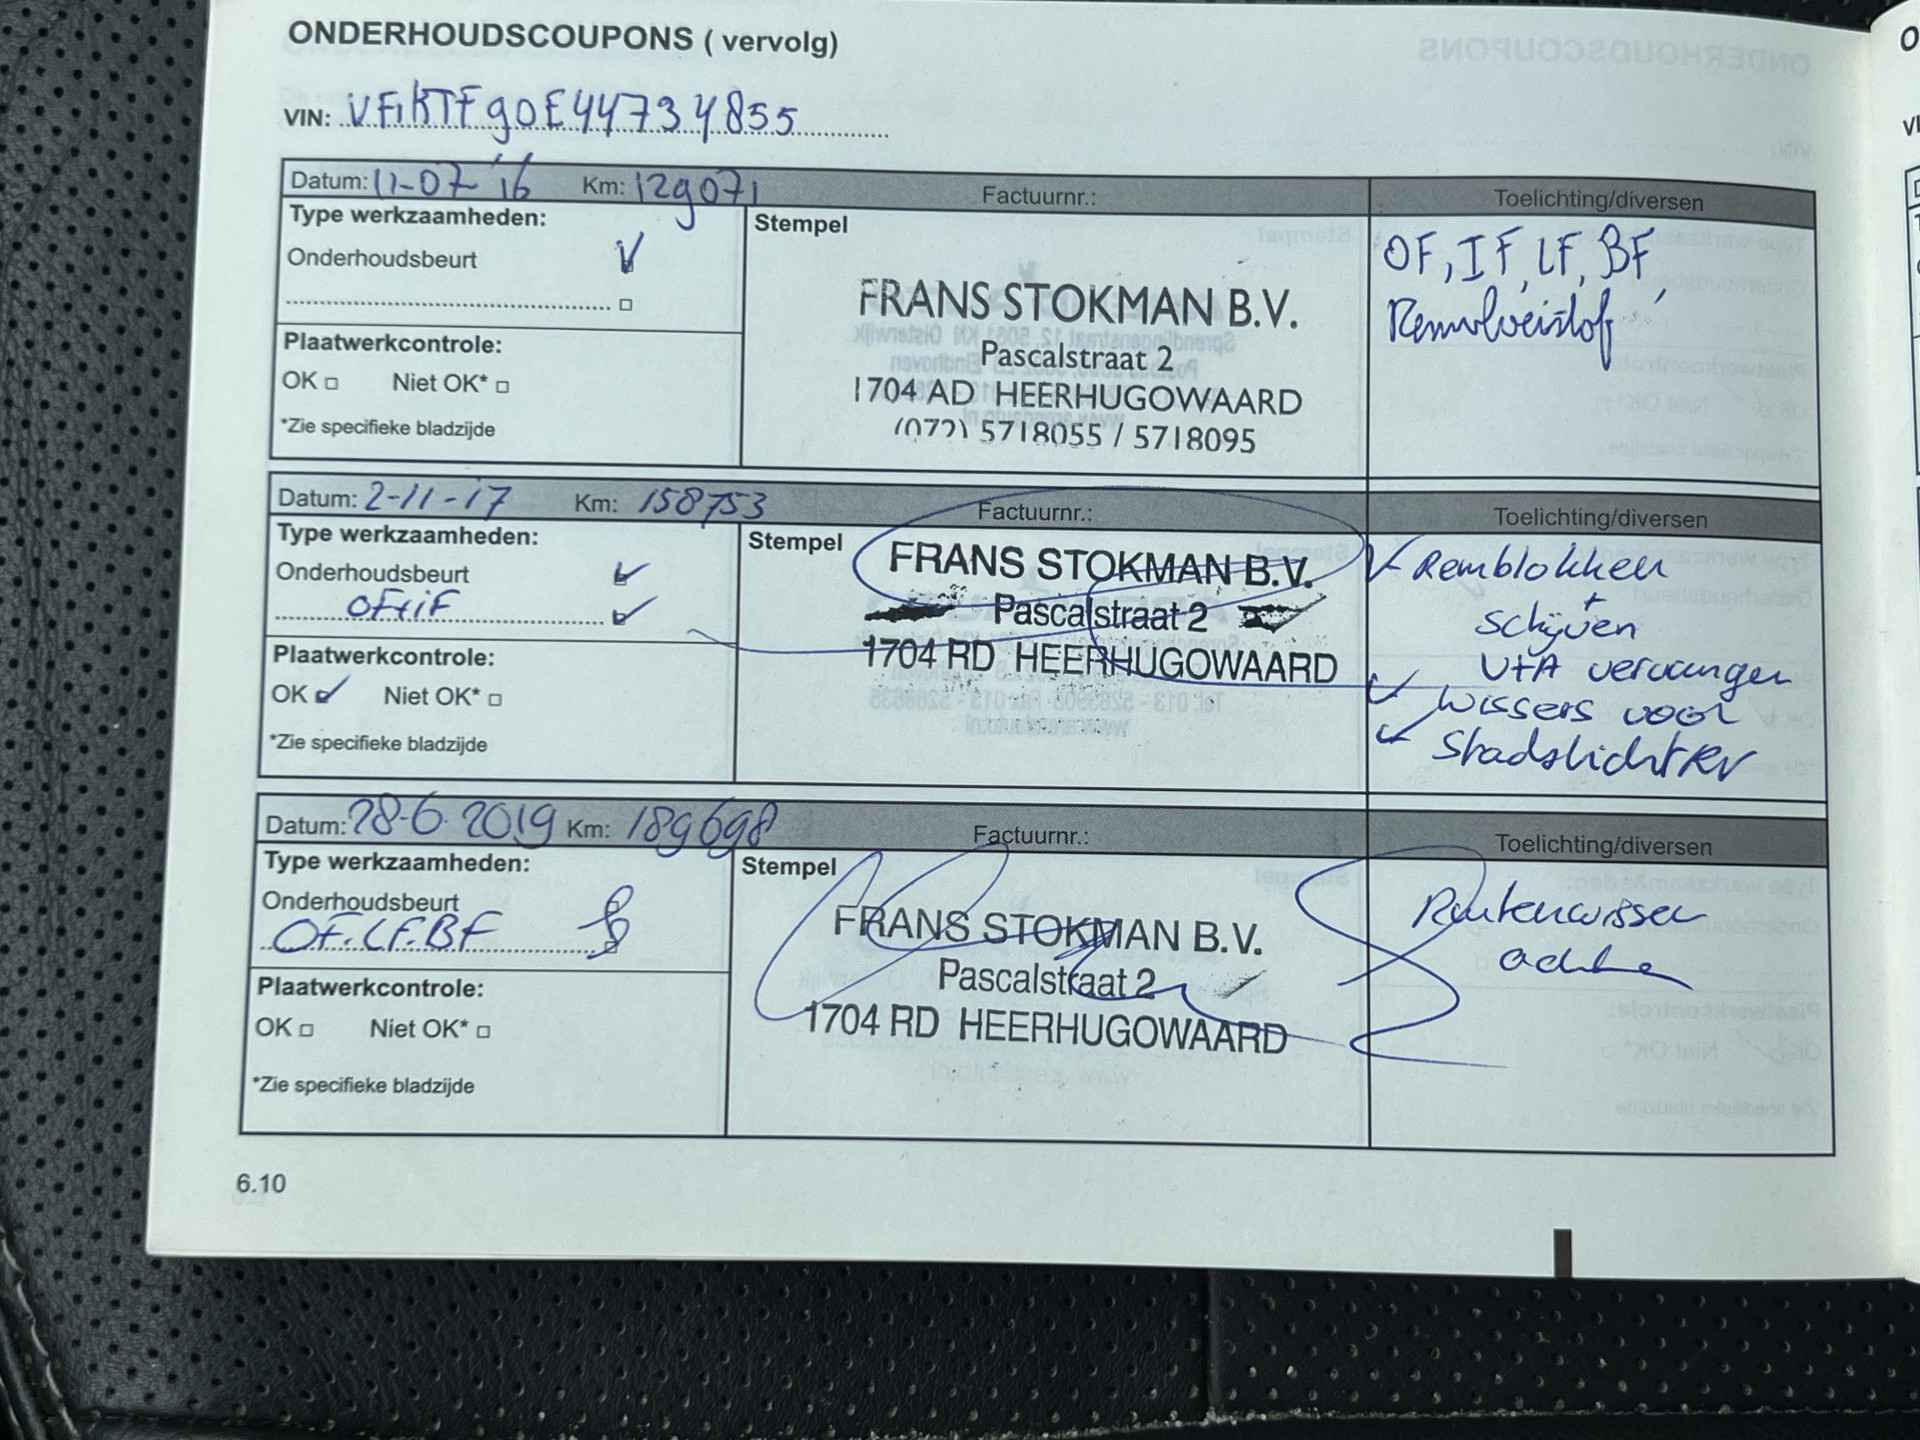 ONDERHOUDSCOUPONS ( vervolg)
VIN: VF1KTFG0E44734855
Datum: 11-07 '16 Km: 129071 Factuurnr.: Toelichting/diversen
Type werkzaamheden:
Onderhoudsbeurt
Plaatwerkcontrole:
OK Niet OK*
*Zie specifieke bladzijde
Stempel
FRANS STOKMAN B.V.
Pascalstraat 2
1704 AD HEERHUGOWAARD
(072) 5718055 / 5718095
OF, IF, LF, BF,
Remvloeistof
Datum: 2-11-17 Km: 158753 Factuurnr.: Toelichting/diversen
Type werkzaamheden:
Onderhoudsbeurt
OF+IF
Plaatwerkcontrole:
OK Niet OK*
*Zie specifieke bladzijde
Stempel
FRANS STOKMAN B.V.
Pascalstraat 2
1704 RD HEERHUGOWAARD
Remblokken
+
schijven
V+A vervangen
wissers voor
Stadslicht RV
Datum: 28-6-2019 Km: 189698 Factuurnr.: Toelichting/diversen
Type werkzaamheden:
Onderhoudsbeurt
OF. LF. BF
Plaatwerkcontrole:
OK Niet OK*
*Zie specifieke bladzijde
Stempel
FRANS STOKMAN B.V.
Pascalstraat 2
1704 RD HEERHUGOWAARD
Ruitenwisser
achter
6.10